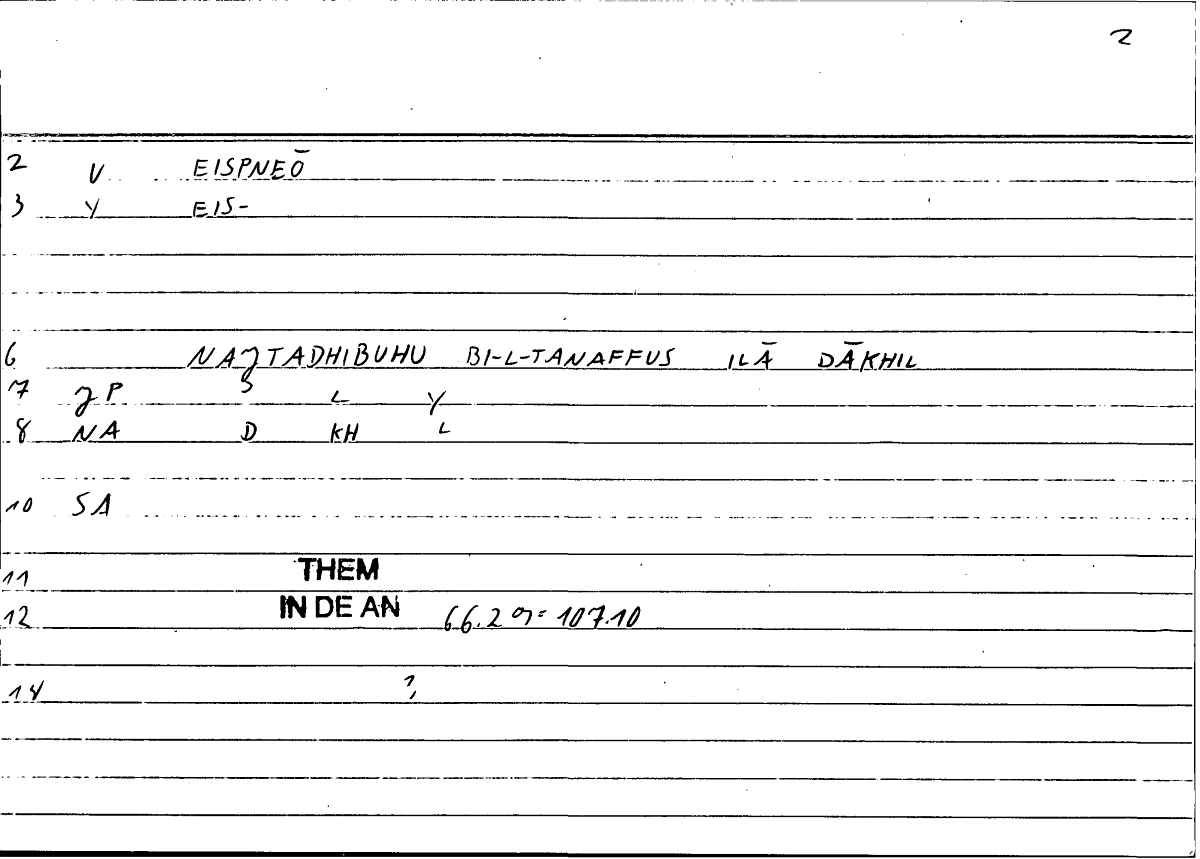 2
2 V EISPNEŌ
3 Y EIS-
6 NAJTADHIBUHU BI-L-TANAFFUS ILĀ DĀKHIL
7 JP 3 L Y
8 NA D KH L
10 SA
11 THEM
12 IN DE AN 66.2 = 107.10
14